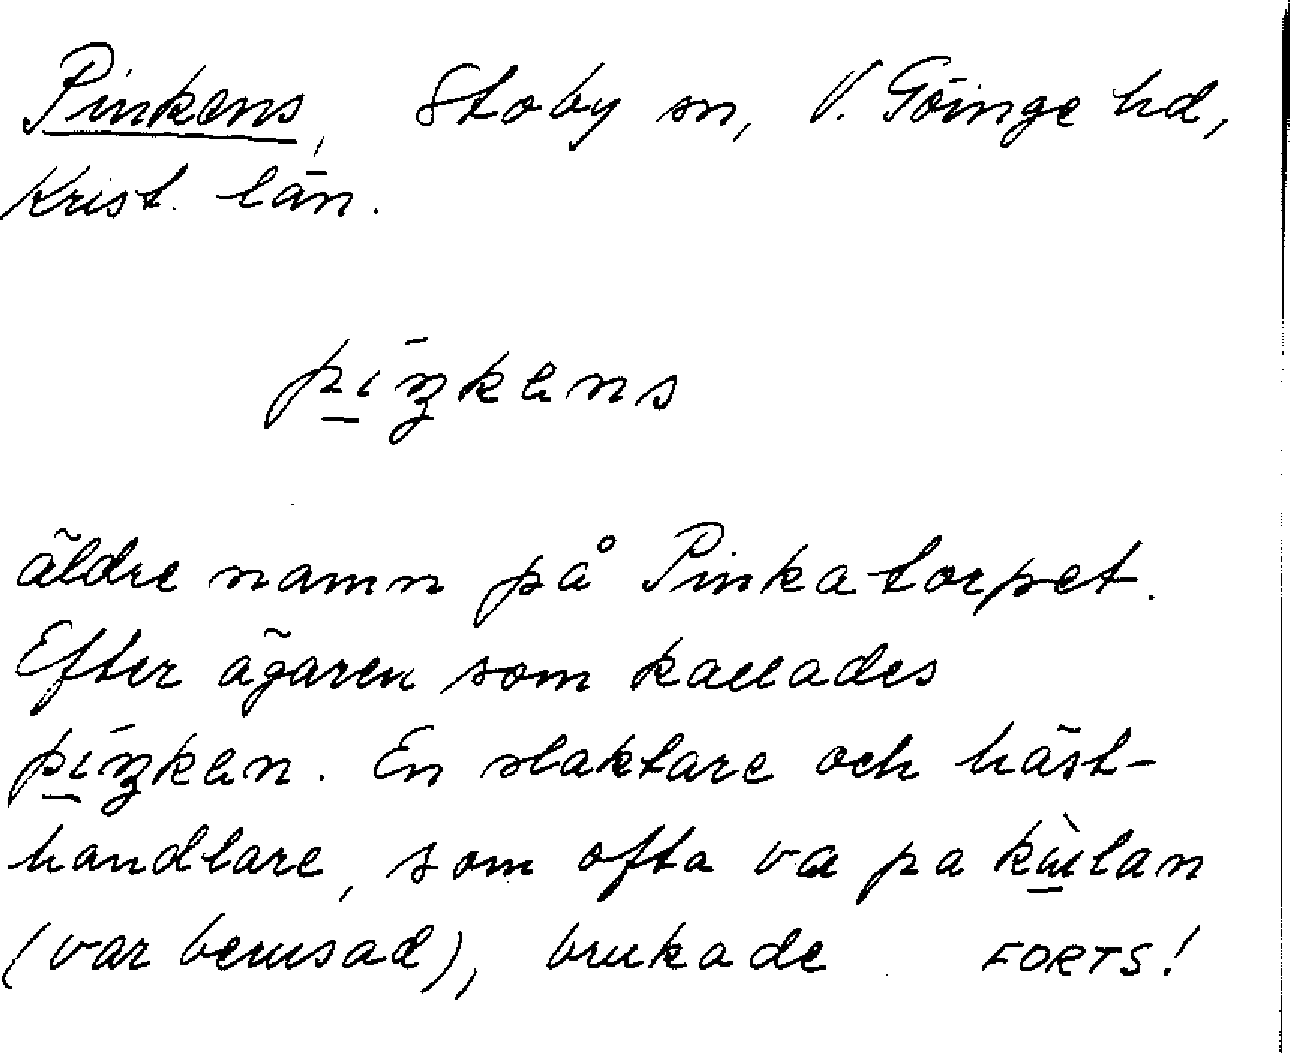 Pinkens, Stoby sn, V. Göinge hd,
Krist. län.
pi̲ŋkəns
äldre namn på Pinkatorpet.
Efter ägaren som kallades
pi̲ŋkən. En slaktare och häst-
handlare, som ofta va pa
(var berusad), brukade FORTS!